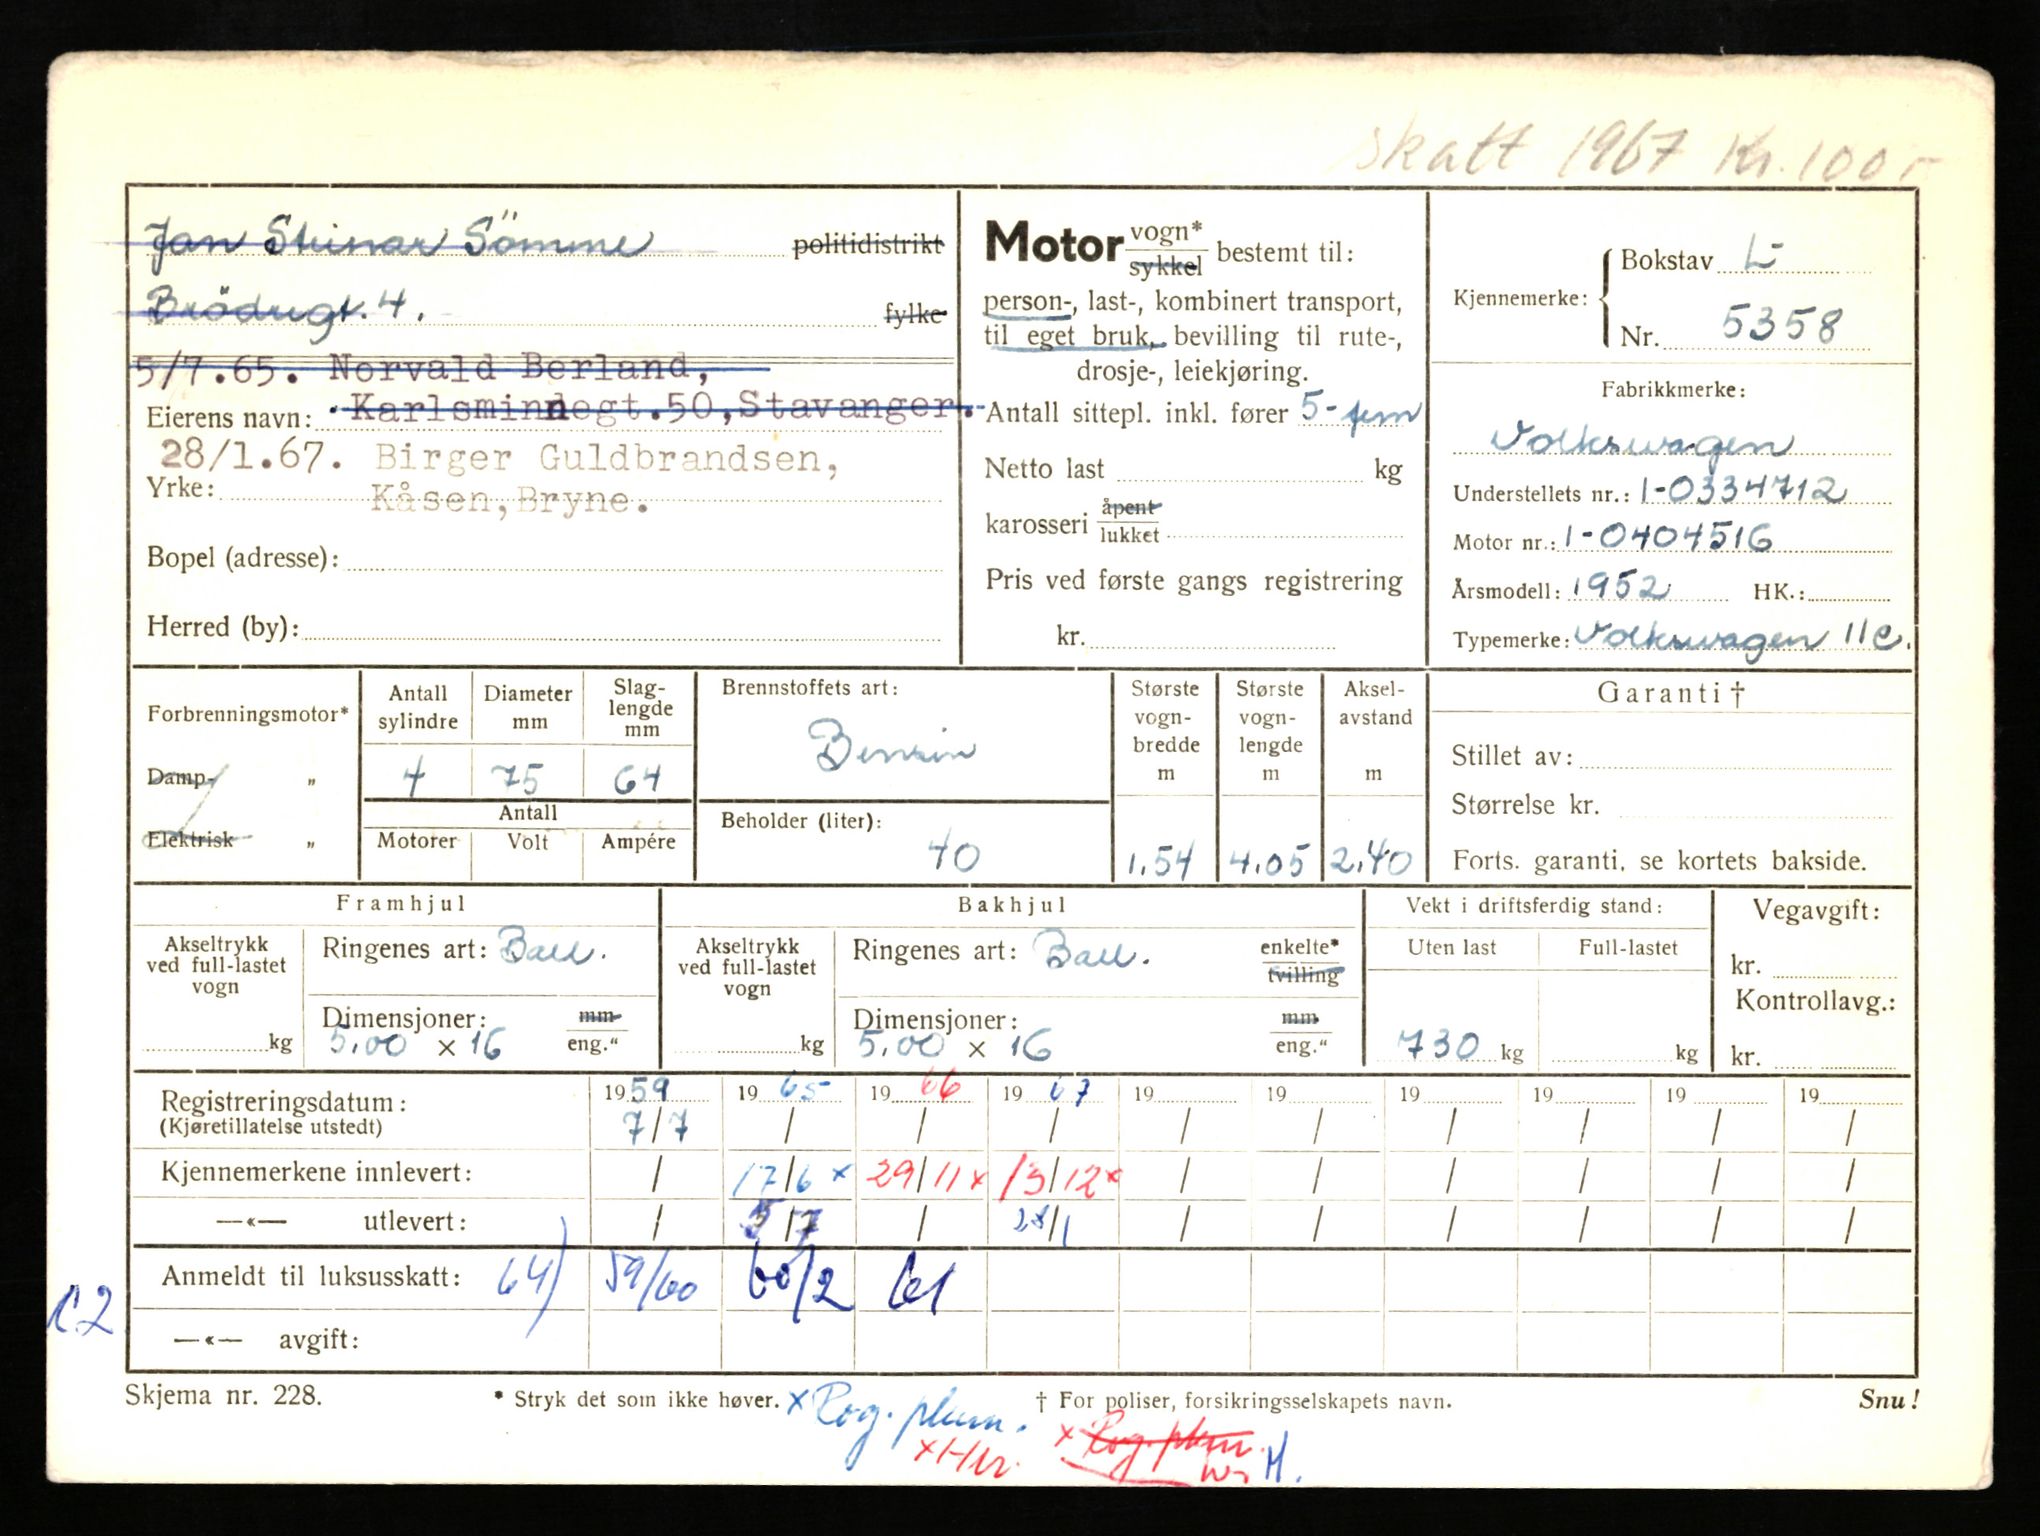 skatt 1967 Kr. 100,-
Jan Steinar Sömme politidistrikt
Brödregt. 4. fylke
5/7.65. Norvald Berland,
Eierens navn: Karlsminnegt.50,Stavanger.
28/1.67. Birger Guldbrandsen,
Yrke: Kåsen,Bryne.
Bopel (adresse):
Herred (by):
Motor vogn* sykkel bestemt til:
person-, last-, kombinert transport,
til eget bruk, bevilling til rute-,
drosje-, leiekjøring.
Antall sittepl. inkl. fører 5- fem
Netto last kg
karosseri åpent lukket
Pris ved første gangs registrering
kr.
Kjennemerke: Bokstav L-
Nr. 5358
Fabrikkmerke:
Volkswagen
Understellets nr.: 1-0334712
Motor nr.: 1-0404516
Årsmodell: 1952 HK.:
Typemerke: Volkswagen 11c.
Forbrenningsmotor*
Damp- „
Elektrisk „
Antall sylindre Diameter mm Slag-lengde mm
4 75 64
Antall
Motorer Volt Ampére
Brennstoffets art:
Bensin
Beholder (liter):
40
Største vogn-bredde m Største vogn-lengde m Aksel-avstand m
1.54 4.05 2.40
Garanti †
Stillet av:
Størrelse kr.
Forts. garanti, se kortets bakside.
Framhjul
Akseltrykk ved full-lastet vogn
kg
Ringenes art: Ball.
Dimensjoner: mm
5.00 × 16 eng."
Bakhjul
Akseltrykk ved full-lastet vogn
kg
Ringenes art: Ball. enkelte* tvilling
Dimensjoner: mm
5.00 × 16 eng."
Vekt i driftsferdig stand:
Uten last Full-lastet
730 kg kg
Vegavgift:
kr.
Kontrollavg.:
kr.
Registreringsdatum: 1959 1965 1966 1967 19 19 19 19 19 19
(Kjøretillatelse utstedt) 7/7 / / / / / / / / /
Kjennemerkene innlevert: / 17/6 x 29/11 x 13/12 x / / / / / /
—«— utlevert: / 5/7 / 28/1 / / / / / /
Anmeldt til luksusskatt: 64) 59/60 60/2 61
—«— avgift:
Skjema nr. 228. * Stryk det som ikke høver. † For poliser, forsikringsselskapets navn. Snu!
x Rog. plum. x Rog. plum.
H.